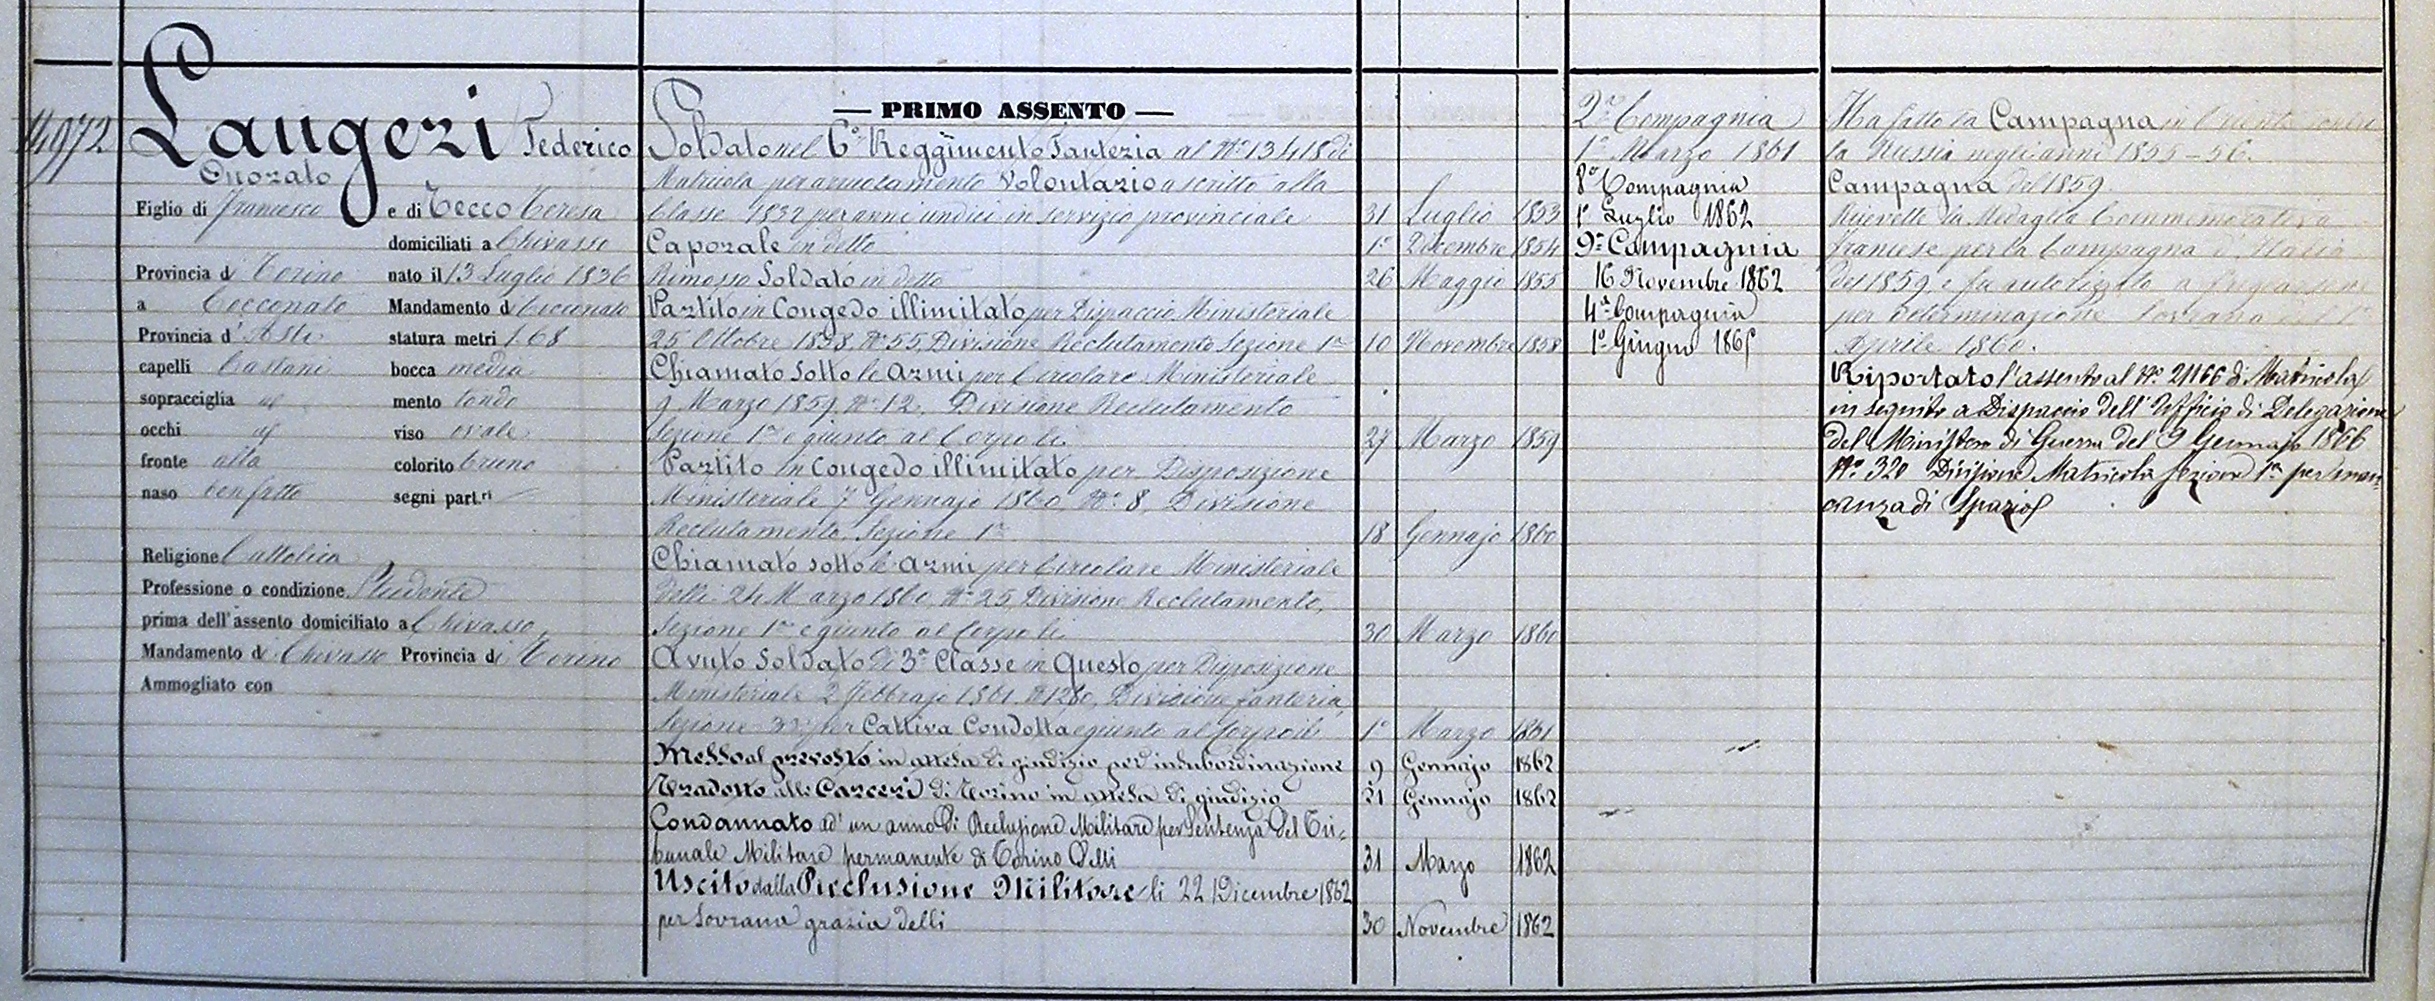 14972
Laugeri Federico
Onorato
Figlio di Francesco e di Tecco Teresa
domiciliati a Chivasso
Provincia di Torino nato il 13 Luglio 1836
a Cocconato Mandamento di Cocconato
Provincia d' Asti statura metri 1.68
capelli Castani bocca media
sopracciglia id mento tondo
occhi id viso ovale
fronte alta colorito bruno
naso ben fatto segni part.ri
Religione Cattolica
Professione o condizione Studente
prima dell'assento domiciliato a Chivasso
Mandamento di Chivasso Provincia di Torino
Ammogliato con
— PRIMO ASSENTO —
Soldato nel 6° Reggimento Fanteria al N° 13418 di
Matricola per arruolamento volontario ascritto alla
Classe 1832 per anni undici in servizio provinciale 31 Luglio 1853
Caporale in detto 1° Dicembre 1854
Rimosso Soldato in detto 26 Maggio 1855
Partito in Congedo illimitato per Dispaccio Ministeriale
25 Ottobre 1858, N° 55, Divisione Reclutamento Sezione 1a 10 Novembre 1858
Chiamato sotto le armi per Circolare Ministeriale
9 Marzo 1859 N° 12, Divisione Reclutamento
Sezione 1a e giunto al Corpo li 27 Marzo 1859
Partito in Congedo illimitato per Disposizione
Ministeriale 7 Gennajo 1860, N° 8, Divisione
Reclutamento, Sezione 1a 18 Gennajo 1860
Chiamato sotto le armi per Circolare Ministeriale
delli 24 Marzo 1860, N° 25, Divisione Reclutamento,
Sezione 1a e giunto al Corpo li 30 Marzo 1860
Avuto Soldato di 3a Classe in Questo per Disposizione
Ministeriale 2 Febbrajo 1861 N° 1280, Divisione fanteria,
Sezione 3a per Cattiva Condotta e giunto al Corpo li 1° Marzo 1861
Messo al prevosto in attesa di giudizio per insubordinazione 9 Gennajo 1862
Tradotto alle Carceri di Torino in attesa di giudizio 21 Gennajo 1862
Condannato ad' un anno di Reclusione Militare per Sentenza del Tri-
bunale Militare permanente di Torino delli 31 Marzo 1862
Uscito dalla Reclusione Militare li 22 Dicembre 1862
per Sovrana grazia delli 30 Novembre 1862
2a Compagnia
1° Marzo 1861
8a Compagnia
1° Luglio 1862
9a Compagnia
16 Novembre 1862
4a Compagnia
1° Giugno 1865
Ha fatto la Campagna in Oriente contro
la Russia negli anni 1855-56.
Campagna del 1859.
Ricevette la Medaglia Commemorativa
francese per la Campagna d'Italia
del 1859, e fu autorizzato a fregiarsene
per Determinazione Sovrana del 1°
Aprile 1860.
Riportato l'assento al N° 21166 di Matricola
in seguito a Dispaccio dell' Ufficio di Delegazione
del Ministero di Guerra del 9 Gennajo 1866
N° 320 Divisione Matricola Sezione 1a per man-
canza di Spazio